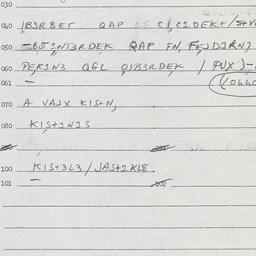 030
040 IB3RBET QAP C1,C1DEK+/S+V
050 -BJ1NT3RDEK QAP FN, FEJD3RN]
060 PER1N3 QGL QJB3RDEK / PUX )-
061 - (066
070 A VAJX KIS+N,
080 KIS+1N1S
100 KIS+3L3 / JAS+1KL8.
101 - 102